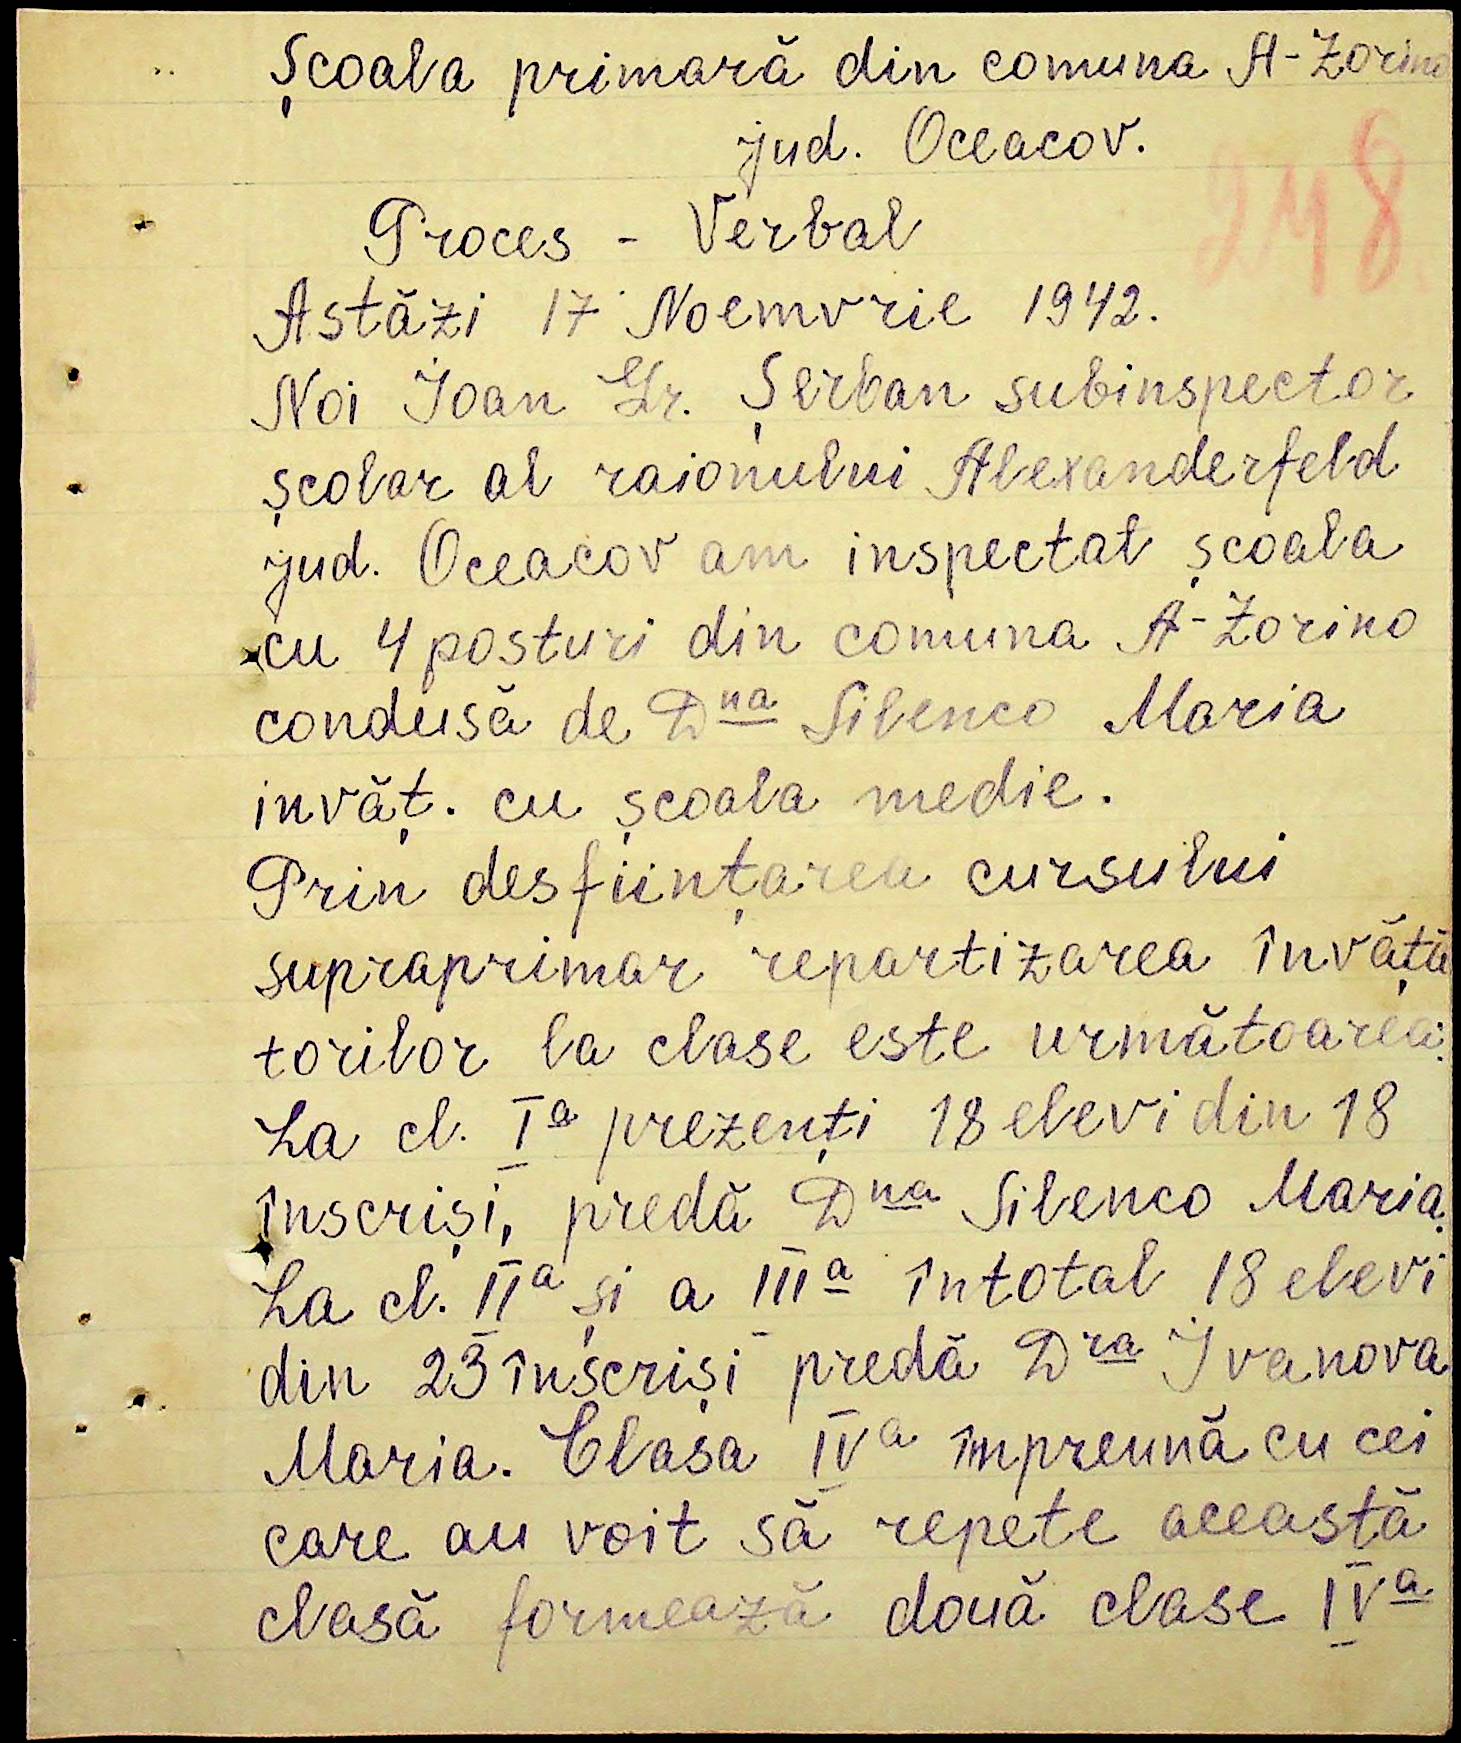 Școala primară din comuna A-Zorino
jud. Oceacov.
248
Proces - Verbal
Astăzi 17 Noemvrie 1942.
Noi Ioan Gr. Șerban subinspector
școlar al raionului Alexanderfeld
jud. Oceacov am inspectat școala
cu 4 posturi din comuna A-Zorino
condusă de Dna Silenco Maria
invăț. cu școala medie.
Prin desființarea cursului
supraprimar repartizarea învăță
torilor la clase este următoarea:
La cl. Ia prezenți 18 elevi din 18
înscriși, predă Dna Silenco Maria.
La cl. IIa și a IIIa întotal 18 elevi
din 23 înscriși predă Dra Ivanova
Maria. Clasa IVa împreună cu cei
care au voit să repete această
clasă formează două clase IVa